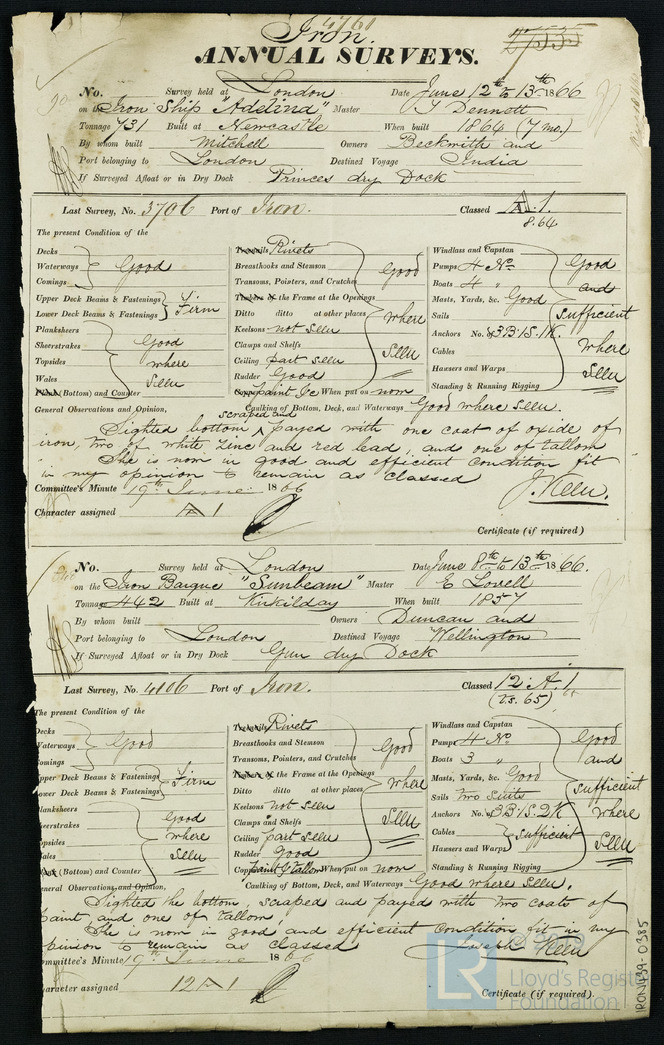 Iron.
ANNUAL SURVEYS.
No. Survey held at London Date June 12th to 13th 1866
on the Iron Ship "Adelina" Master T Dennott
Tonnage 731 Built at Newcastle When built 1864 (7 mo.)
By whom built Mitchell Owners Beckwith and
Port belonging to London Destined Voyage India
If Surveyed Afloat or in Dry Dock Princes dry Dock
Last Survey, No. 3706 Port of Iron. Classed A.1.
8.64
The present Condition of the
Decks
Waterways Good
Comings
Upper Deck Beams & Fastenings
Lower Deck Beams & Fastenings Firm
Planksheers
Sheerstrakes Good
Topsides where
Wales seen
(Bottom) and Counter
Treenails Rivets
Breasthooks and Stemson Good
Transoms, Pointers, and Crutches
Timbers of the Frame at the Openings
Ditto ditto at other places where
Keelsons not seen
Clamps and Shelfs
Ceiling part seen seen
Rudder Good
Copper paint &c When put on now
Windlass and Capstan
Pumps 4 No. Good
Boats 4 " and
Masts, Yards, &c. Good
Sails sufficient
Anchors No. of 3B.1S.1K.
Cables where
Hawsers and Warps seen
Standing & Running Rigging
General Observations and Opinion, Caulking of Bottom, Deck, and Waterways Good where seen.
Sighted bottom scraped and payed with one coat of oxide of
iron, two of white zinc and red lead, and one of tallow
She is now in good and efficient condition fit
in my opinion to remain as classed
J. Keen.
Committee's Minute 19th June 1866
Character assigned A 1
Certificate (if required)
No. Survey held at London Date June 8th to 13th 1866.
on the Iron Barque "Sunbeam" Master E Lovell
Tonnage 442 Built at Kirkilday When built 1857
By whom built Owners Duncan and
Port belonging to London Destined Voyage Wellington
If Surveyed Afloat or in Dry Dock Gun dry Dock
Last Survey, No. 4106 Port of Iron. Classed 12.A.1
(Ts. 65)
The present Condition of the
Decks
Waterways Good
omings
pper Deck Beams & Fastenings
ower Deck Beams & Fastenings Firm
lanksheers
eerstrakes Good
opsides where
ales seen
(Bottom) and Counter
Treenails Rivets
Breasthooks and Stemson Good
Transoms, Pointers, and Crutches
Timbers of the Frame at the Openings
Ditto ditto at other places where
Keelsons not seen
Clamps and Shelfs seen
Ceiling part seen
Rudder good
Copper paint & tallow When put on now
Windlass and Capstan
Pumps 4 No. Good
Boats 3 " and
Masts, Yards, &c. Good
Sails two suits sufficient
Anchors No. of 3B.1S.2K where
Cables
Hawsers and Warps sufficient seen
Standing & Running Rigging
eneral Observations and Opinion, Caulking of Bottom, Deck, and Waterways Good where seen.
Sighted the bottom, scraped and payed with two coats of
paint, and one of tallow.
She is now in good and efficient condition fit in my
opinion to remain as classed
Joseph Keen
ommittee's Minute 19th June 1866
aracter assigned 12 A 1
Certificate (if required).
IRON439-0385
LR
© 2020
Lloyd's Register
Foundation